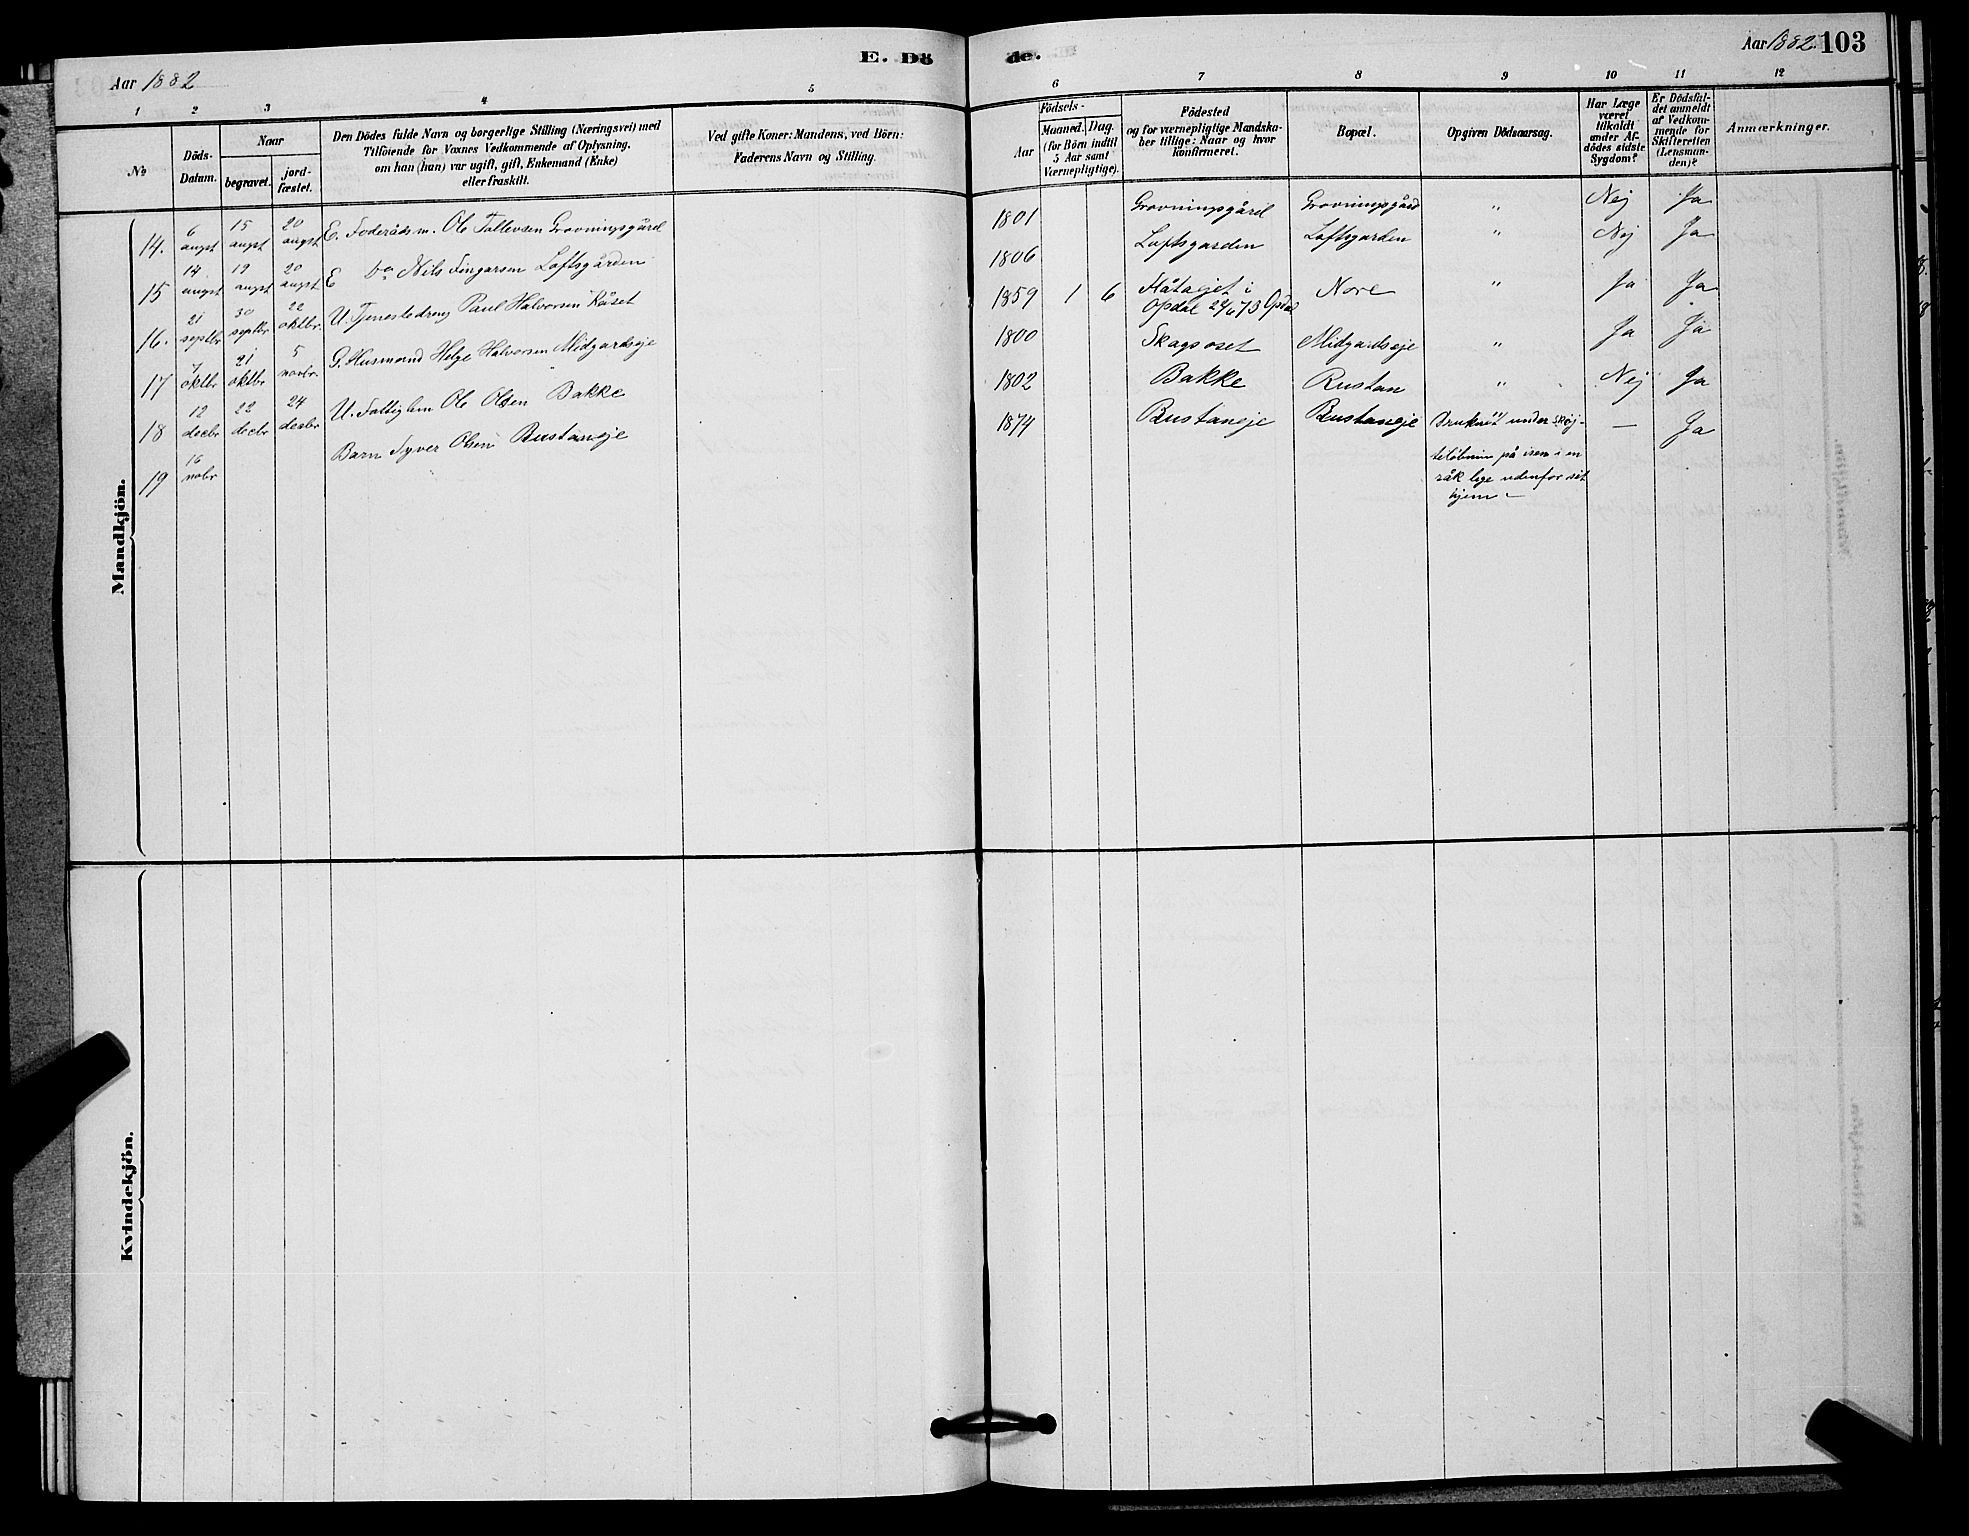 E. Dö
de.
Aar 1882
Aar 1882. 103
1 2 3 4 5
6 7 8 9 10 11 12
No
Döds-
Datum.
Naar
begravet.
jord-
fæstet.
Den Dödes fulde Navn og borgerlige Stilling (Næringsvei) med
Tilföiende for Voxnes Vedkommende af Oplysning,
om han (hun) var ugift, gift, Enkemand (Enke)
eller fraskilt.
Ved gifte Koner: Mandens, ved Börn:
Faderens Navn og Stilling.
Födsels-
Aar
Maaned. Dag.
(for Börn indtil
5 Aar samt
Værnepligtige).
Födested
og for værnepligtige Mandska-
ber tillige: Naar og hvor
Konfirmeret.
Bopæl.
Opgiven Dödsaarsag.
Har Læge
været
tilkaldt
under Af-
dödes sidste
Sygdom?
Er Dödsfal-
det anmeldt
af Vedkom-
mende for
Skifteretten
(Lensman-
den)?
Anmærkninger.
Mandkjön.
14. 6 augst 15 augst 20 augst E. Föderådsm. Ole Tollevsen Grovningsgård 1801 Grovningsgård Grovningsgård " Nej Ja
15 14 augst 19 augst 20 augst E Do Nils Fingarsen Loftsgården 1806 Loftsgarden Loftsgarden " Nej Ja
16. 21 septbr 30 septbr 22 oktbr. U. Tjenestedreng Paul Halvorsen Råset 1859 1 6 Håtaejet i " Nore Ja Ja
Opdal 24/6 73 Opdal
17 7 oktbr 21 oktbr 5 novbr. G. Husmand Helge Halvorsen Midgardseje 1800 Skagsoset Midgardseje " Ja Ja
18 12 decbr 22 decbr 24 decbr U. Fattiglem Ole Olsen Bakke 1802 Bakke Rustan " Nej Ja
19 16 nobr Barn Syver Olsen Rustaneje 1874 Rustaneje Rustaneje Druknet under skøj- — Ja
teløbning på isen i en
råk lige udenfor sit
hjem
Kvindekjön.